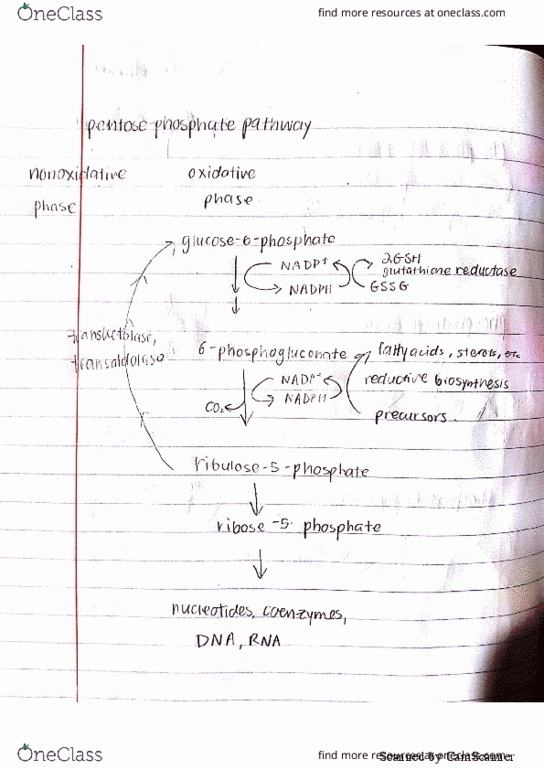 OneClass
find more resources at oneclass.com
pentose phosphate pathway
nonoxidative
phase
oxidative
phase
glucose-6-phosphate
NADP+
NADPH
2GSH
glutathione reductase
GSSG
transketolase,
transaldolase
6-phosphogluconate
fattyacids, sterols, etc
NADP+
reductive biosynthesis
NADPH
CO2
precursors.
ribulose-5-phosphate
ribose-5-phosphate
nucleotides, coenzymes,
DNA, RNA
OneClass
find more resources at oneclass.com
Scanned by CamScanner